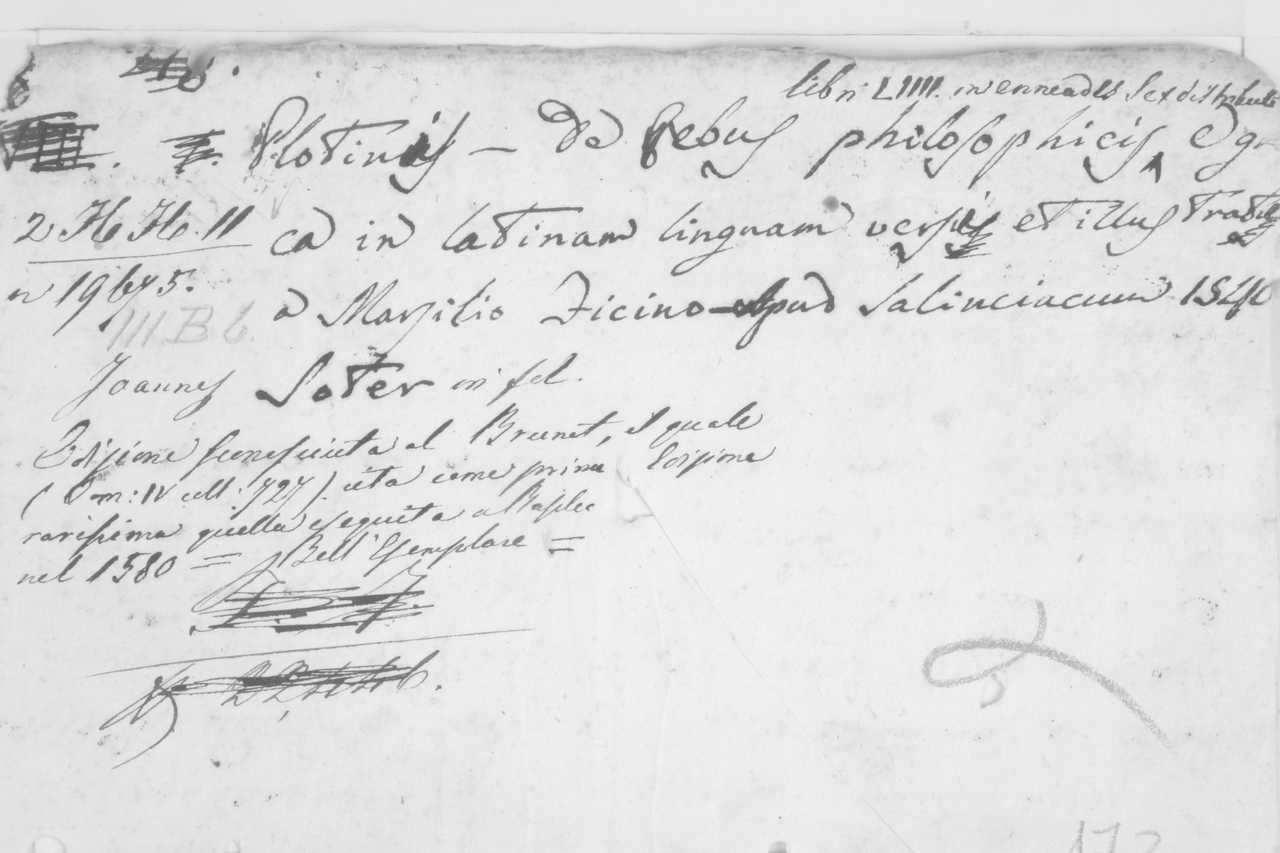 libri LIIII. in enneades sex distributi
Plotinus - De Rebus philosophicis e Græ
2 H. H. 11 ca in latinam linguam versi et illus trati
n 19645. a Marsilio Ficino apud Salinciacum 1540
III B b.
Joannes Soter in fol.
Edizione sconosciuta al Brunet, il quale
(Tom: IV coll: 727). cita come prima Edizione
rarissima quella eseguita a Basilea
nel 1580 = Bell' Esemplare =
172